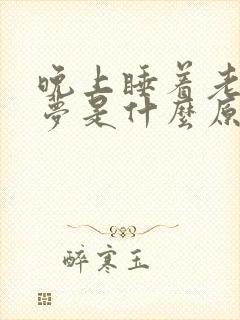 晚上睡着老
梦是什麼原
醉寒玉